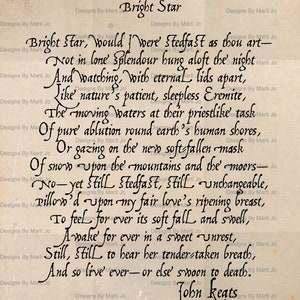 Bright Star
Bright star, would I were stedfast as thou art—
Not in lone splendour hung aloft the night
And watching, with eternal lids apart,
Like nature's patient, sleepless Eremite,
The moving waters at their priestlike task
Of pure ablution round earth's human shores,
Or gazing on the new soft-fallen mask
Of snow upon the mountains and the moors—
No—yet still stedfast, still unchangeable,
Pillow'd upon my fair love's ripening breast,
To feel for ever its soft fall and swell,
Awake for ever in a sweet unrest,
Still, still to hear her tender-taken breath,
And so live ever—or else swoon to death.
John Keats
Designs By Marti Jo